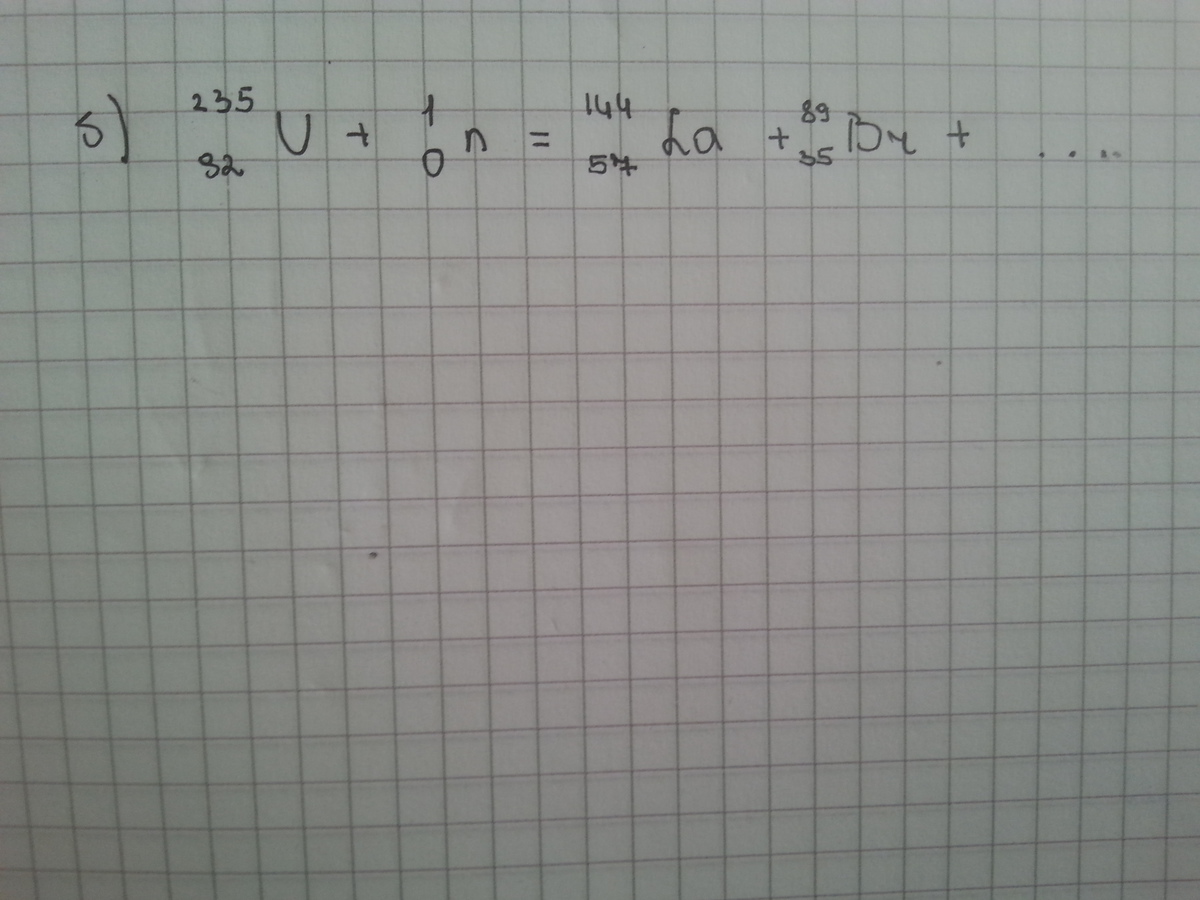 5) ²³⁵₉₂U + ¹₀n = ¹⁴⁴₅₇La + ⁸⁹₃₅Br + ....